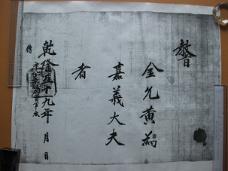 敎旨
金允黃爲
嘉義大夫
者
乾隆五十九年 月 日